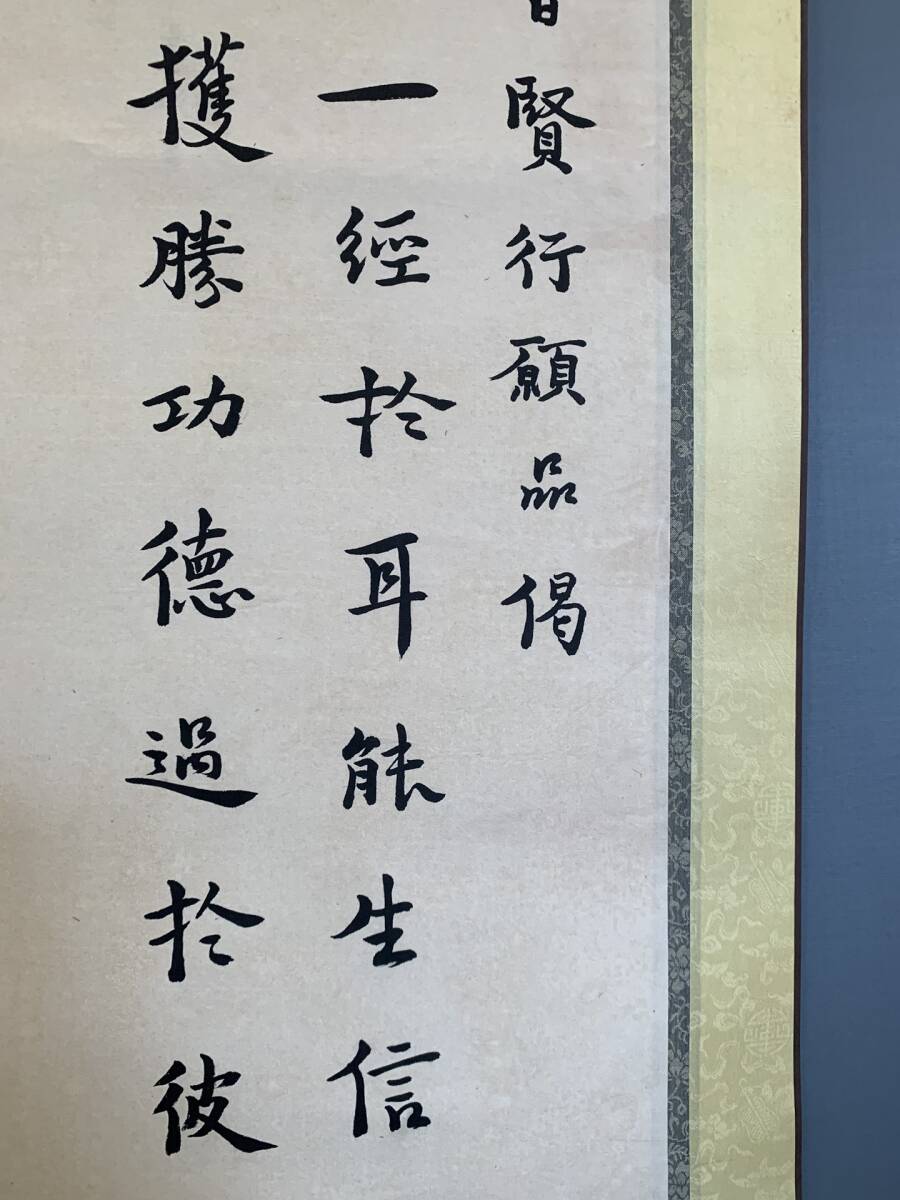 賢行願品偈
一經於耳能生信
獲勝功德過於彼